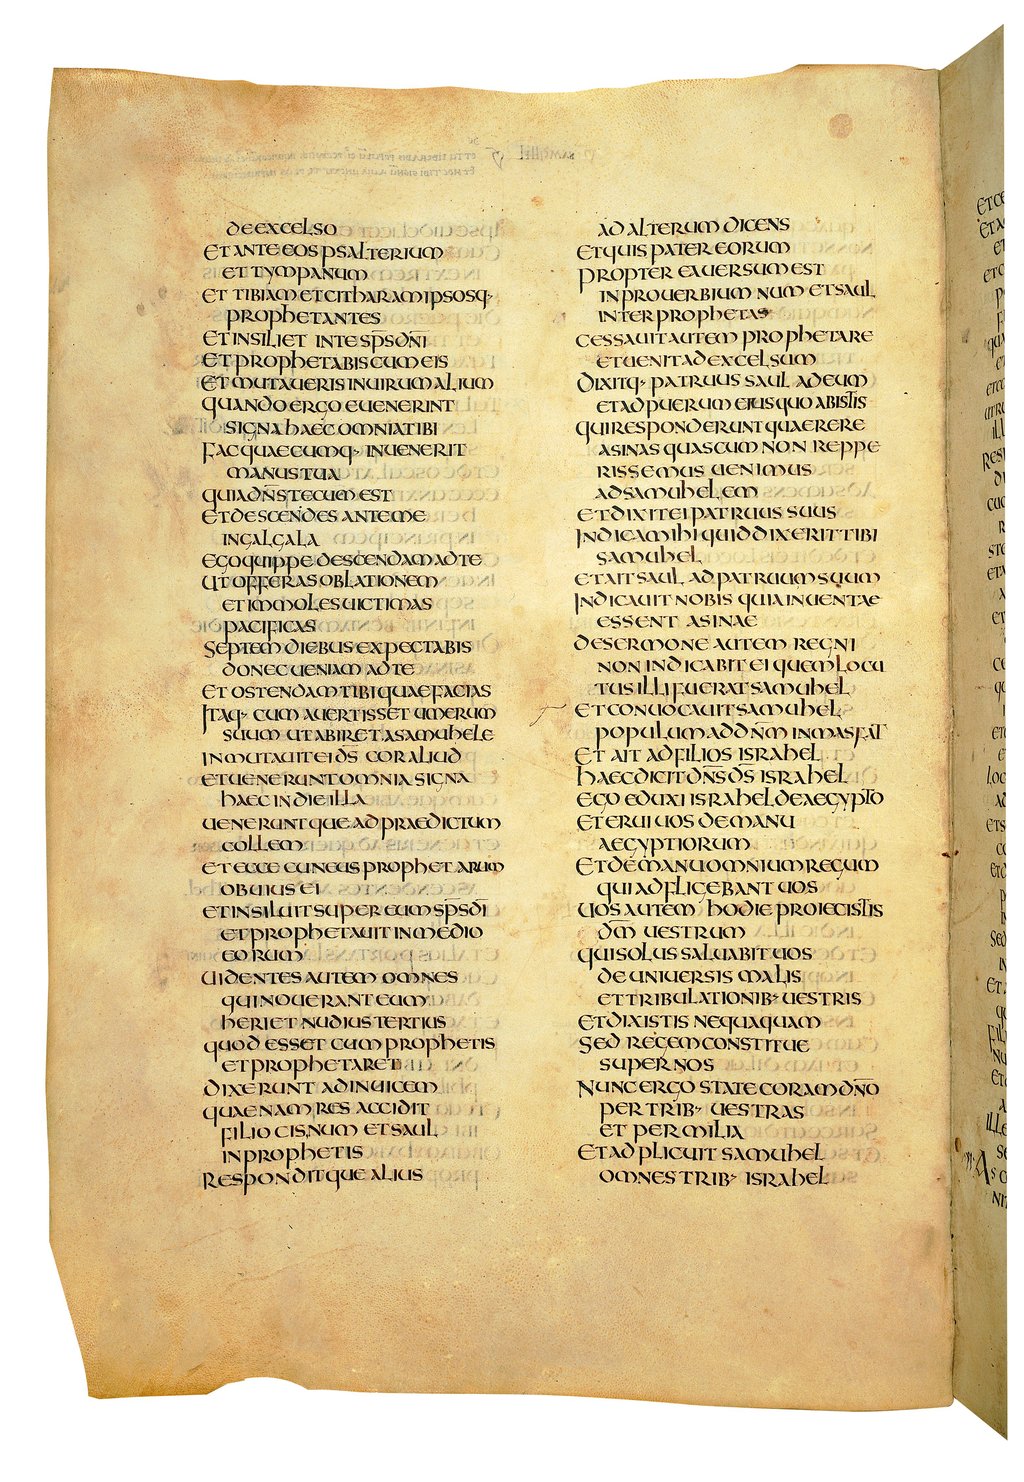 de excelso
et ante eos psalterium
et tympanum
et tibiam et citharam ipsosq·
prophetantes
et insiliet in te sp̄s dn̄i
et prophetabis cum eis
et mutaueris in uirum alium
quando ergo euenerint
signa haec omnia tibi
fac quaecumq· inuenerit
manus tua
quia dn̄s tecum est
et descendes ante me
in galgala
ego quippe descendam ad te
ut offeras oblationem
et immoles uictimas
pacificas
septem diebus expectabis
donec ueniam ad te
et ostendam tibi quae facias
itaq· cum auertisset umerum
suum ut abiret a samuhele
inmutauit ei ds̄ cor aliud
et uenerunt omnia signa
haec in die illa
ueneruntque ad praedictum
collem
et ecce cuneus prophetarum
obuius ei
et insiluit super eum sp̄s dī
et prophetauit in medio
eorum
uidentes autem omnes
qui nouerant eum
heri et nudius tertius
quod esset cum prophetis
et prophetaret
dixerunt ad inuicem
quaenam res accidit
filio cis num et saul
in prophetis
responditque alius
ad alterum dicens
et quis pater eorum
propterea uersum est
in prouerbium num et saul
inter prophetas
cessauit autem prophetare
et uenit ad excelsum
dixitq· patruus saul ad eum
et ad puerum eius quo abistis
qui responderunt quaerere
asinas quas cum non reppe
rissemus uenimus
ad samuhelem
et dixit ei patruus suus
indica mihi quid dixerit tibi
samuhel
et ait saul ad patruum suum
indicauit nobis quia inuentae
essent asinae
de sermone autem regni
non indicabit ei quem locu
tus illi fuerat samuhel
et conuocauit samuhel
populum ad dn̄m in masfat
et ait ad filios israhel
haec dicit dn̄s ds̄ israhel
ego eduxi israhel de aegypto
et erui uos de manu
aegyptiorum
et de manu omnium regum
qui adfligebant uos
uos autem hodie proiecistis
dm̄ uestrum
qui solus saluabit uos
de uniuersis malis
et tribulationib· uestris
et dixistis nequaquam
sed regem constitue
super nos
nunc ergo state coram dn̄o
per trib· uestras
et per milia
et adplicuit samuhel
omnes trib· israhel